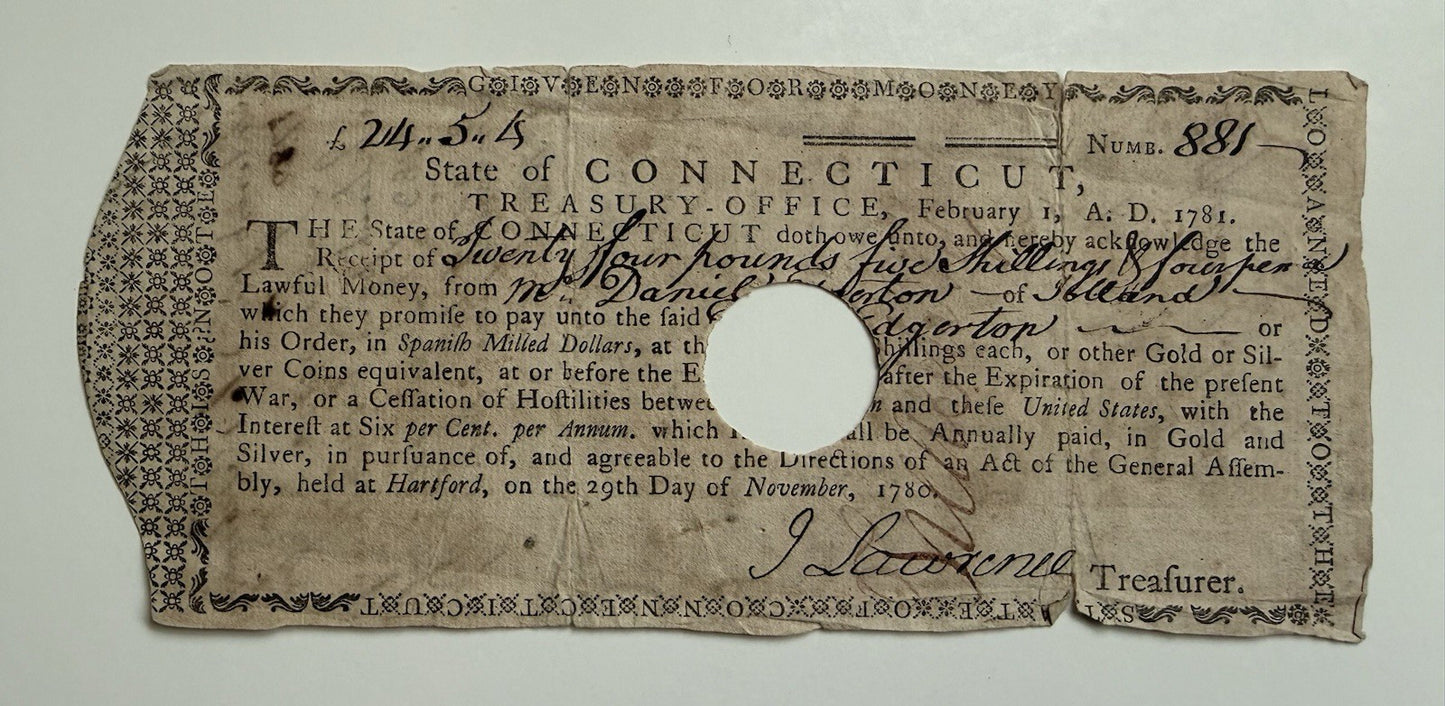 THIS NOTE
GIVEN FOR MONEY
LOANED TO THE
STATE OF CONNECTICUT
£ 24 „ 5 „ 4
NUMB. 881
State of CONNECTICUT,
TREASURY-OFFICE, February 1, A. D. 1781.
THE State of CONNECTICUT doth owe unto, and hereby acknowledge the
Receipt of Twenty four pounds five Shillings & fourpen
Lawful Money, from Mr. Daniel Edgerton of Tolland
which they promiſe to pay unto the ſaid Edgerton or
his Order, in Spaniſh Milled Dollars, at Shillings each, or other Gold or Sil-
ver Coins equivalent, at or before the after the Expiration of the preſent
War, or a Ceſſation of Hoſtilities and theſe United States, with the
Intereſt at Six per Cent. per Annum. which be Annually paid, in Gold and
Silver, in purſuance of, and agreeable to the Directions of an Act of the General Aſſem-
bly, held at Hartford, on the 29th Day of November, 1780.
J Lawrence Treaſurer.